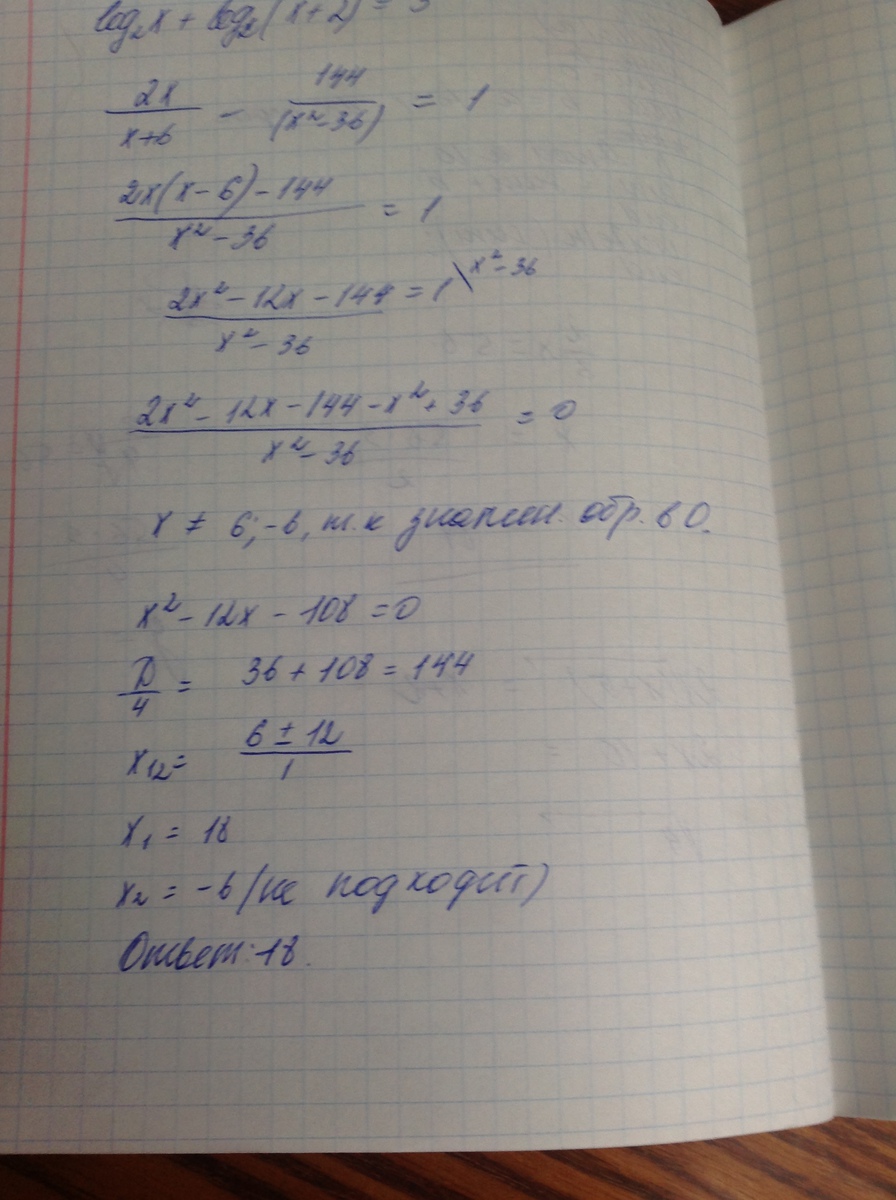 log₂x + log₂(x+2) = 3
2x/(x+6) - 144/(x²-36) = 1
(2x(x-6)-144)/(x²-36) = 1
(2x²-12x-144)/(x²-36) = 1\x²-36
(2x²-12x-144-x²+36)/(x²-36) = 0
x ≠ 6;-6, т.к знамен. обр. в 0.
x²-12x-108=0
D/4 = 36+108=144
x₁₂= (6±12)/1
x₁ = 18
x₂ = -6 (не подходит)
Ответ: 18.